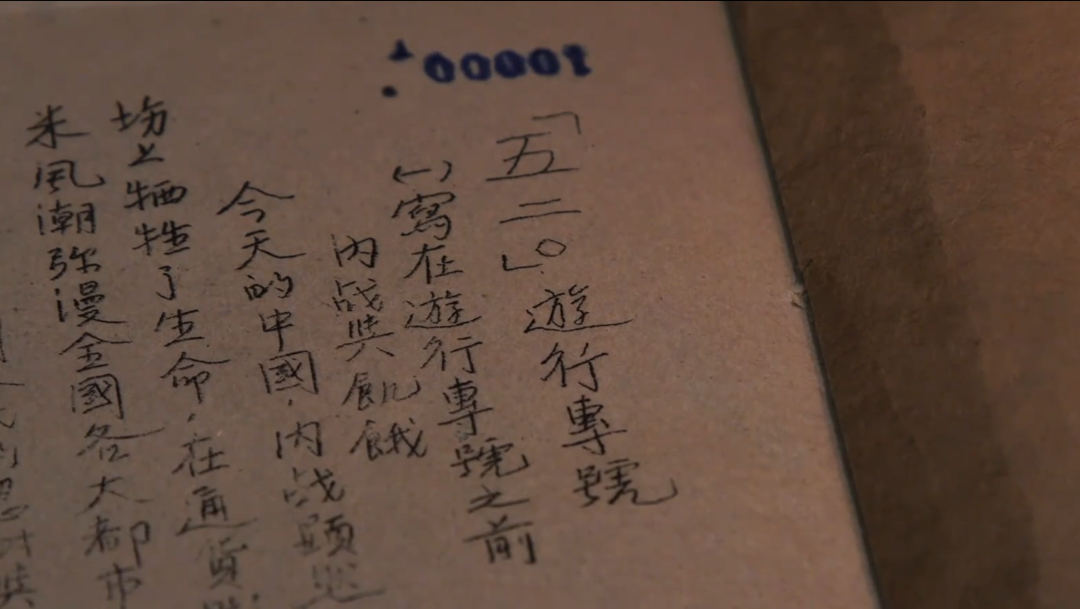 00001
「五二〇」遊行專號
(一)寫在遊行專號之前
內战與飢餓
今天的中國,內战顕然
场上牺牲了生命,在通貨
米風潮弥漫全國各大都市